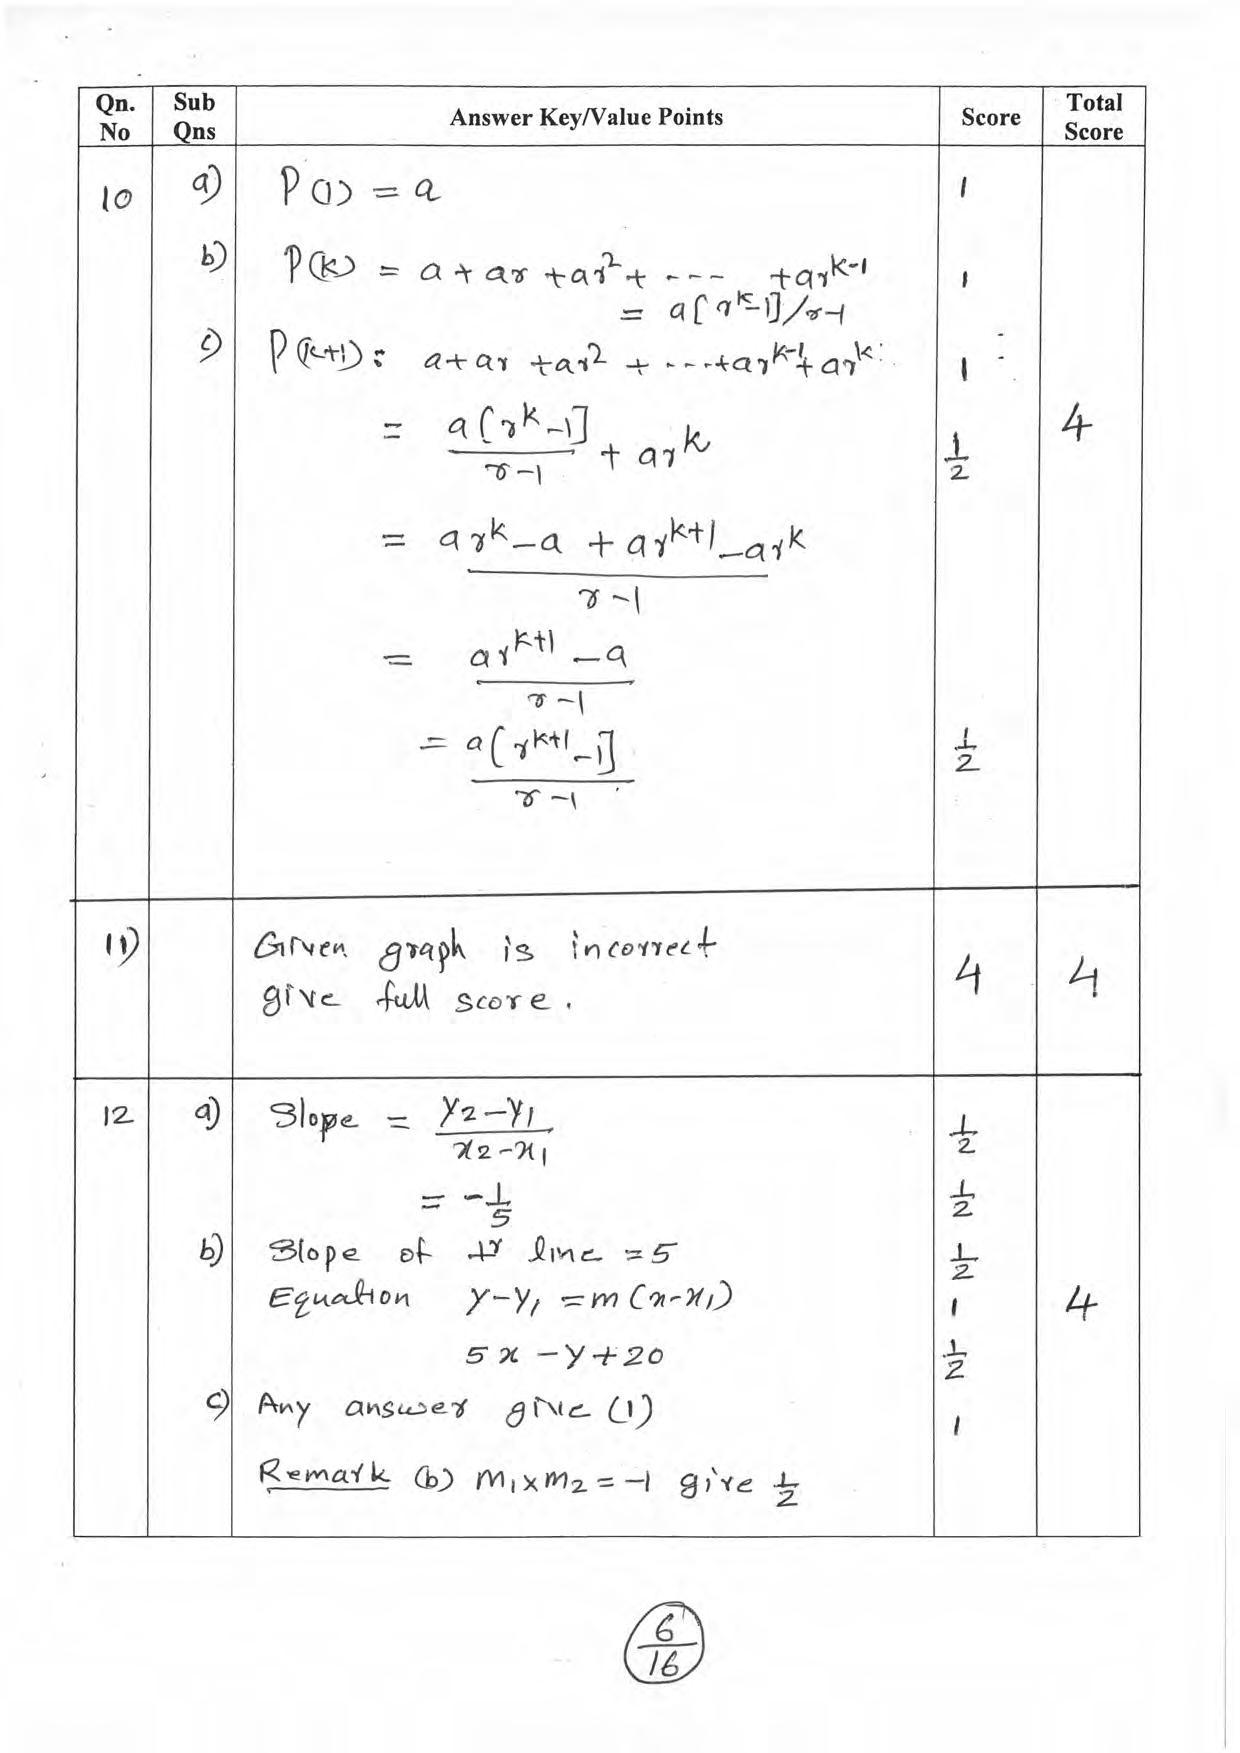 Qn. No Sub Qns Answer Key/Value Points Score Total Score
10 a) P(1) = a 1
b) P(k) = a + ar + ar² + ---- + ar^k-1 1
= a[r^k-1]/r-1
c) P(k+1) : a + ar + ar² + ----+ar^k-1 + ar^k 1
= a[r^k-1]/r-1 + ar^k 1/2 4
= ar^k - a + ar^k+1 - ar^k / r-1
= ar^k+1 - a / r-1
= a[r^k+1 - 1] / r-1 1/2
11) Given graph is incorrect
give full score. 4 4
12 a) Slope = y2-y1 / x2-x1 1/2
= -1/5 1/2
b) Slope of ⊥r line = 5 1/2
Equation y-y1 = m(x-x1) 1 4
5x - y + 20 1/2
c) Any answer give (1) 1
Remark (b) m1 x m2 = -1 give 1/2
6/16